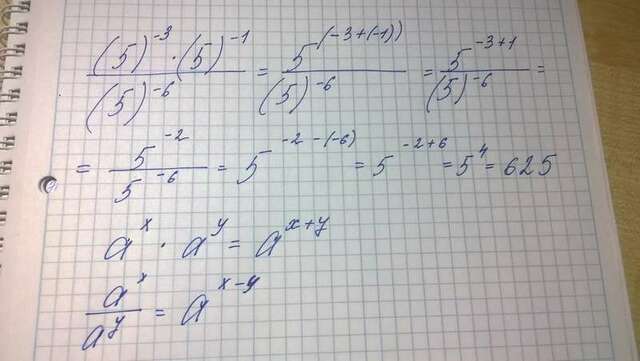 \frac{(5)^{-3} \cdot (5)^{-1}}{(5)^{-6}} = \frac{5^{(-3+(-1))}}{(5)^{-6}} = \frac{5^{-3+1}}{(5)^{-6}} =
= \frac{5^{-2}}{5^{-6}} = 5^{-2-(-6)} = 5^{-2+6} = 5^{4} = 625
a^{x} \cdot a^{y} = a^{x+y}
\frac{a^{x}}{a^{y}} = a^{x-y}